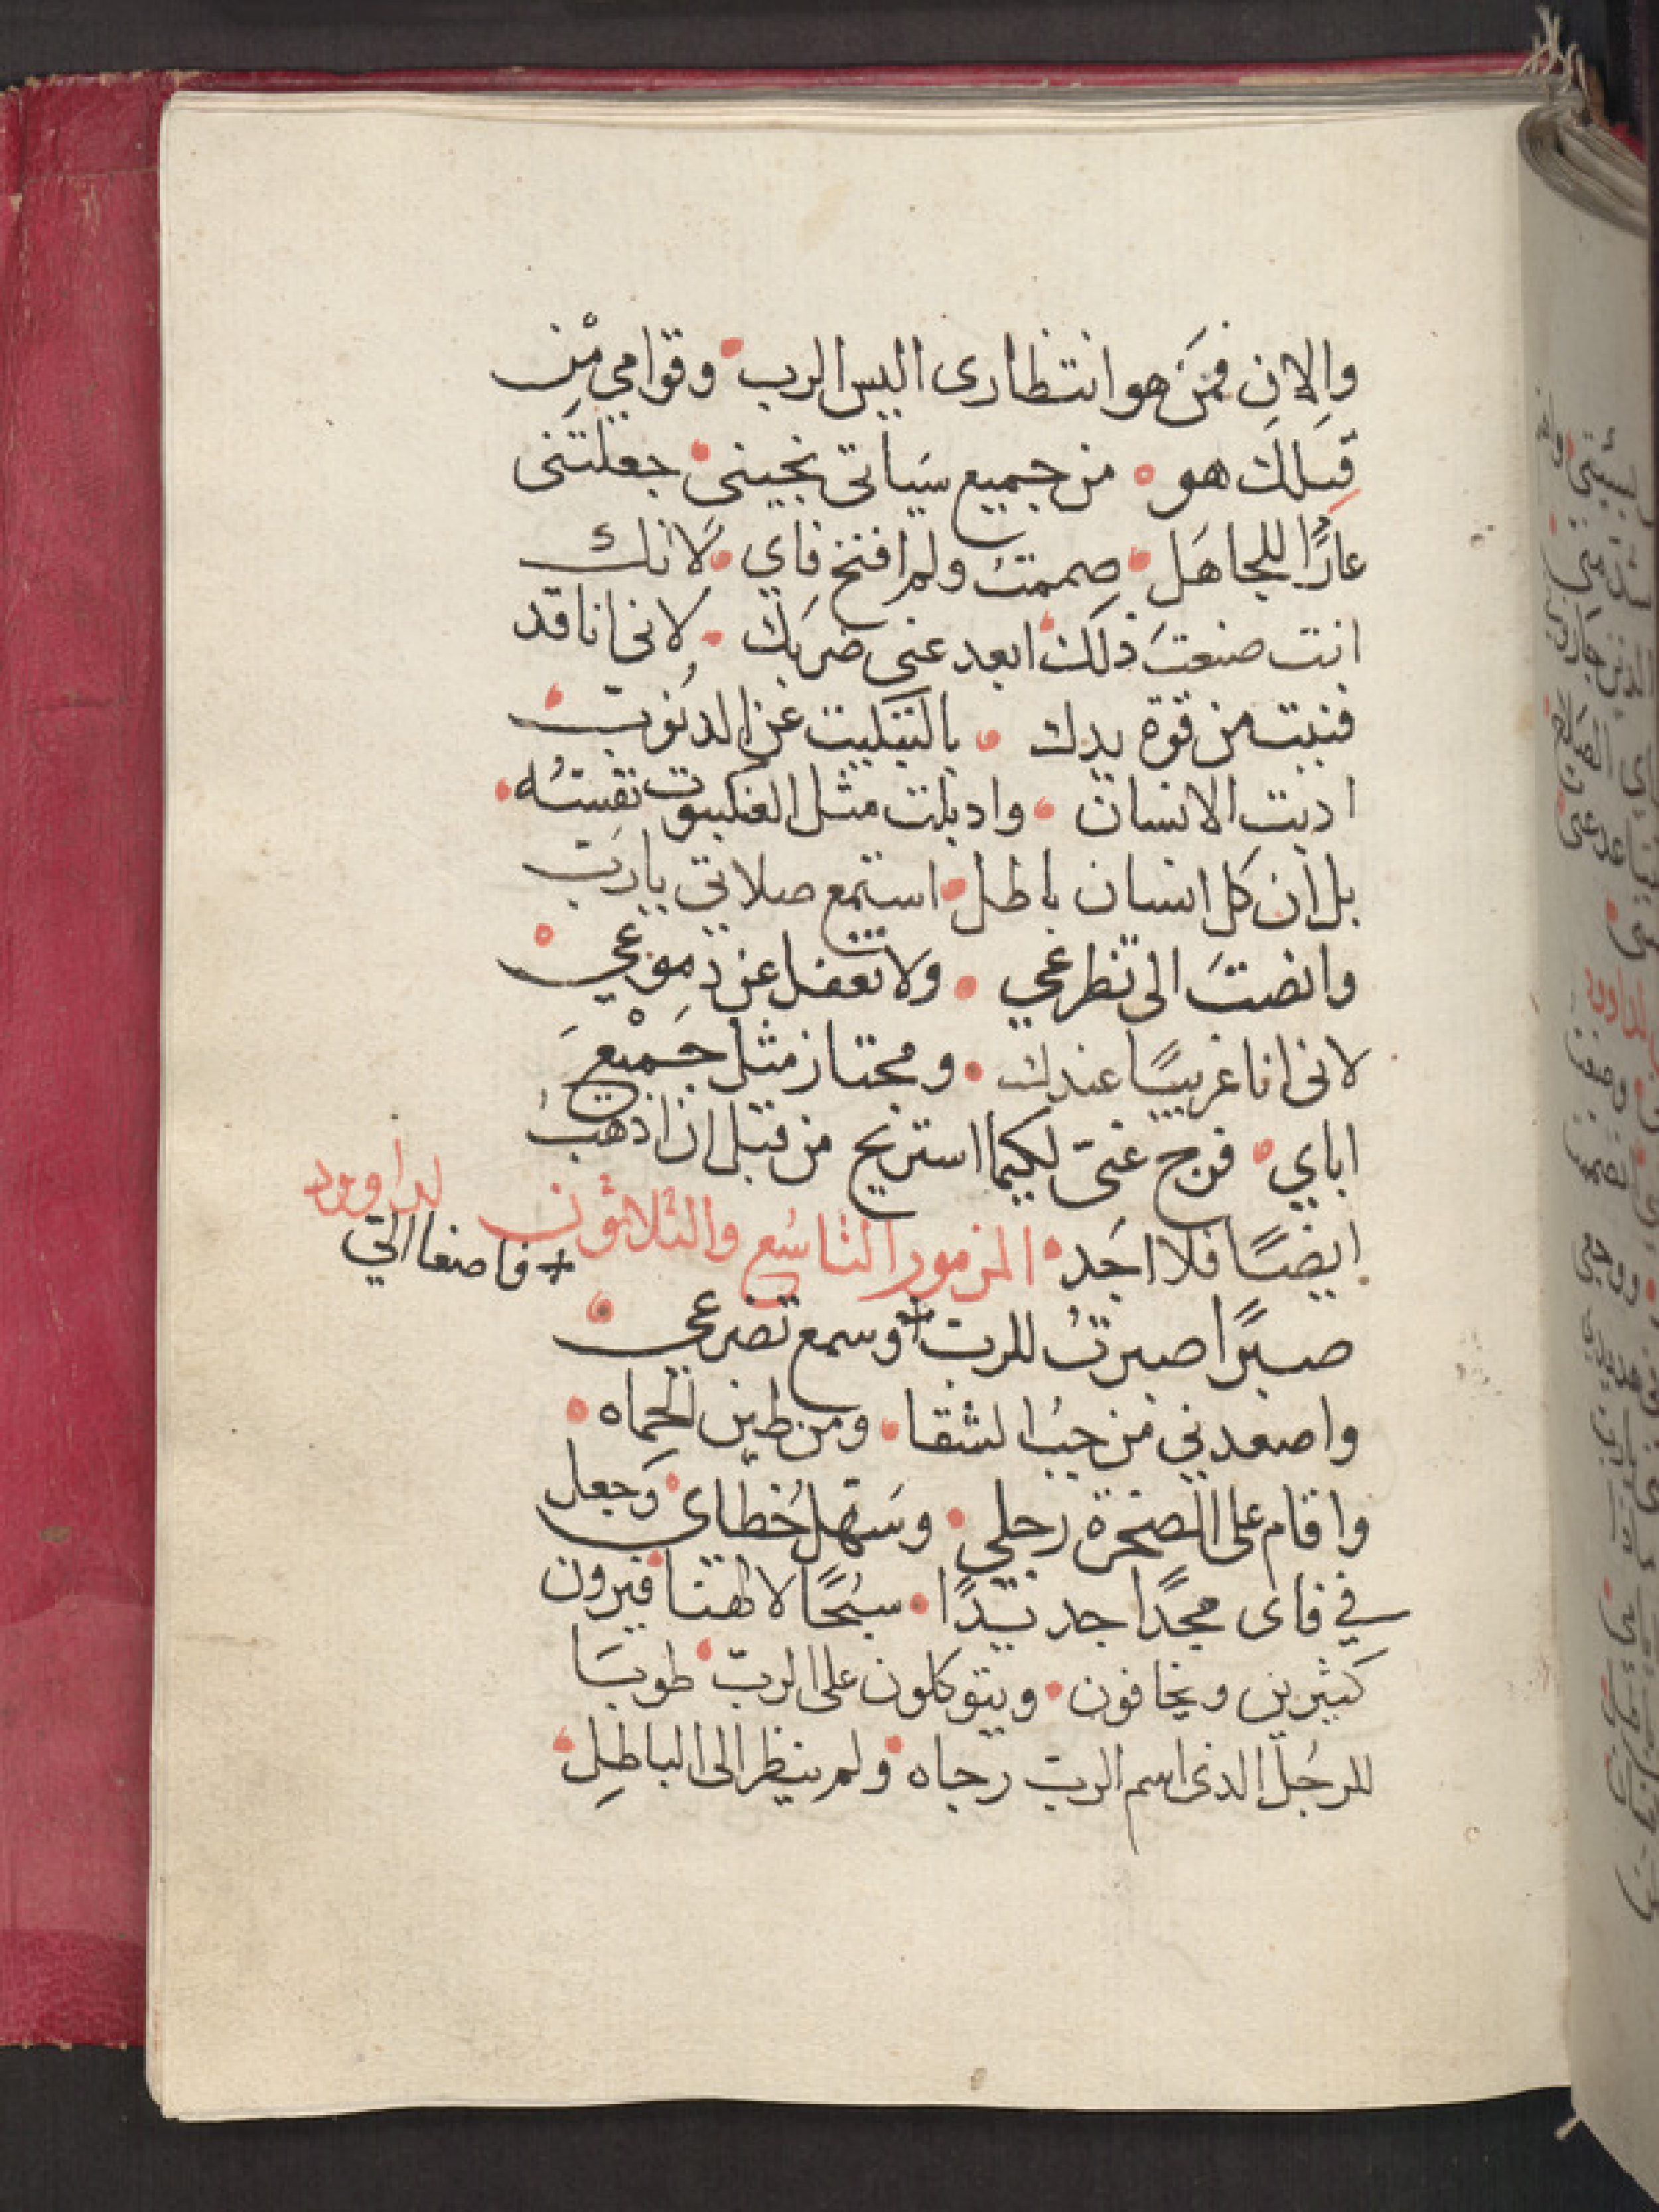 والان فمَن هو انتظارى اليس الرب • وقوامي مْن
قبلك هو • من جميع سَياتى نجينى • جعلتنى
عارًا للجاهَل • صممت ولم افتح فاي • لانك
انت صنعتَ ذلك • ابعد عنى ضربك • لانى انا قد
فنيت من قوة يدك • بالتبكيت عن الدنوب •
ادبت الانسان • واذبلت مثل العنكبوت نفسُه •
بل ان كل انسان باطل • استمع صلاتي يارب
وانصتَ الى تضرعي • ولا تغفل عن دموعي •
لانى انا غريبًا عندك • ومجتاز مثل جَميْعَ
اباي • فرج عنىّ لكيما استريح من قبل ان اذهب
ايضًا فلا اجَد • المزمور التاسُع والثلاثون لداوود
+ فاصغا اليّ
صبرًا صبرتُ للرب + وسمع تضرعي •
واصعدني من جبُ الشقا • ومن طين الحماه •
واقام على الصخرة رجلي • وسَهّل خُطاي • وَجعل
في فاى مجدًا جديدًا • سبُحًا لالهنا • فيرون
كثيرين ويخافون • ويتوكلون على الربّ • طوبَا
للرجُل الذى اسم الرب رجاه • ولم ينظر الى الباطِل •